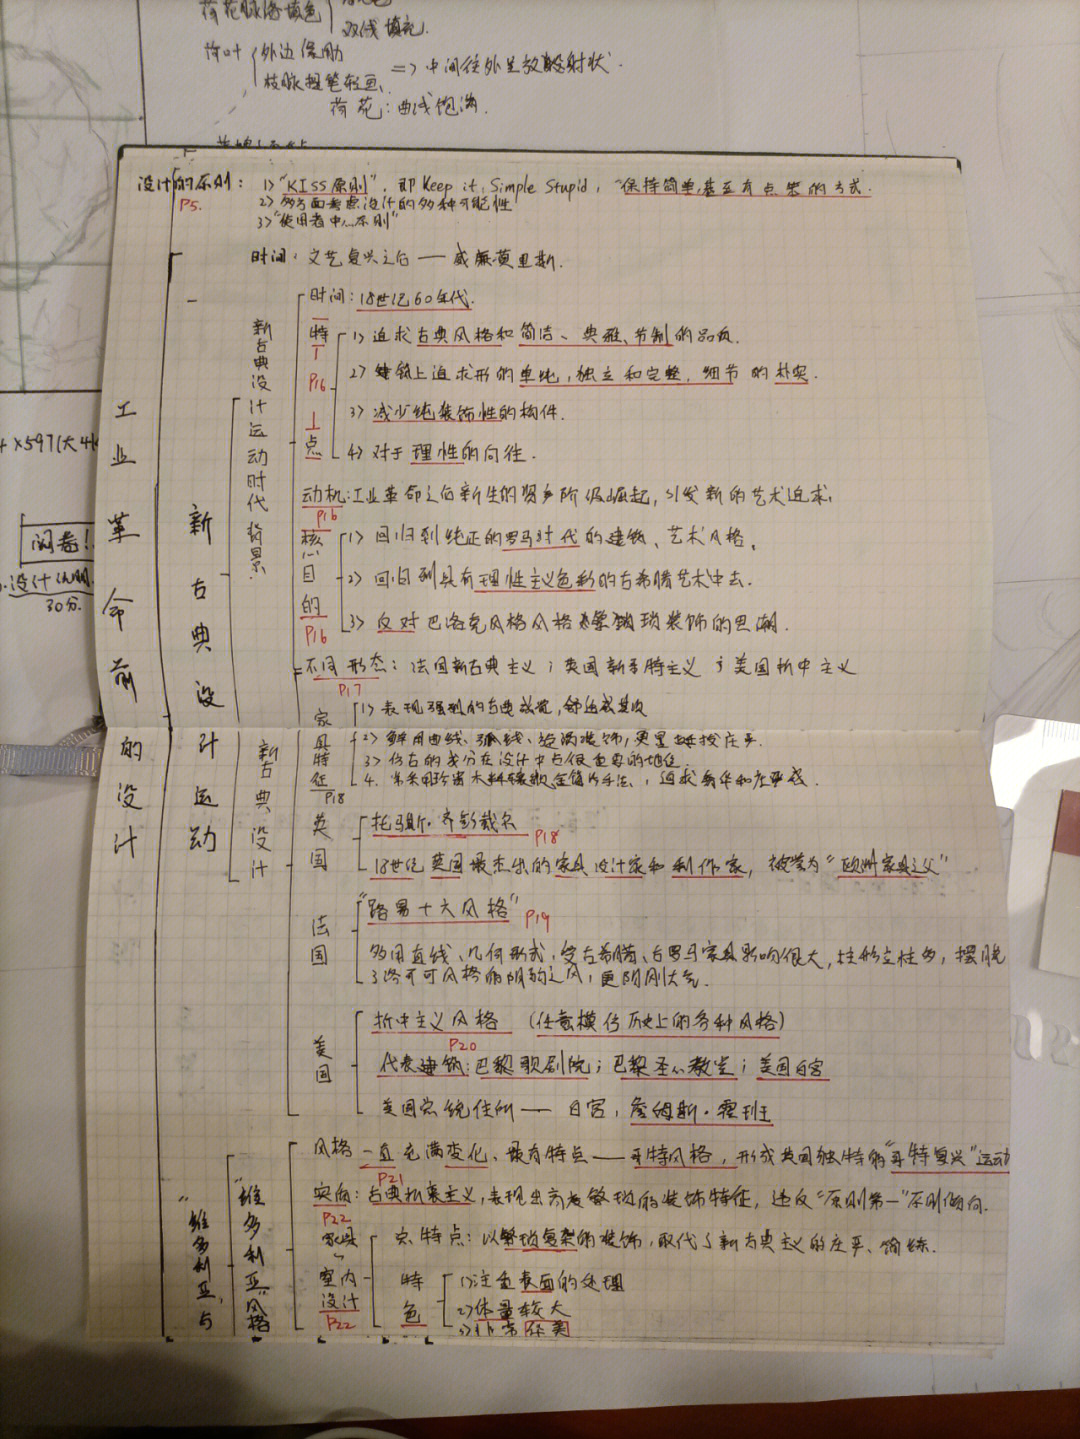 荷花脉络填色
双线填充.
荷叶
外边保助
枝脉提笔轻画,
=> 中间往外呈放射状.
荷花: 曲线饱满.
设计的原则: 1> "KISS原则", 即Keep it Simple Stupid, "保持简单,甚至有点笨的方式.
P5.
2> 多方面考虑设计的多种可能性
3> "使用者中心原则"
时间: 文艺复兴之后 — 威廉莫里斯.
工业革命前的设计
新古典设计运动
新古典设计运动时代背景.
时间: 18世纪60年代.
特点
P16
1> 追求古典风格和简洁、典雅、节制的品质.
2> 建筑上追求形的单纯,独立和完整,细节的朴实.
3> 减少纯装饰性的构件.
4> 对于理性的向往.
动机: 工业革命之后新生的资产阶级崛起, 引发新的艺术追求.
P16
核心目的
P16
1> 回归到纯正的罗马时代的建筑、艺术风格.
2> 回归到具有理性主义色彩的古希腊艺术中去.
3> 反对巴洛克风格风格繁琐装饰的思潮.
不同形态: 法国新古典主义; 英国新哥特主义; 美国折中主义
P17
新古典设计
家具特征
P18
1> 表现强烈的古典
2> 鲜用曲线、弧线、旋涡装饰,
3> 仿古的成分在设计中占很重要的地位.
4. 常采用珍贵木料镶嵌
英国
托马斯·齐彭代尔
P18
18世纪英国最杰出的家具设计家和制作家, 被誉为"欧洲家具之父"
法国
"路易十六风格"
P19
多用直线、几何形式, 受古希腊、古罗马家具影响很大, 柱形立柱多, 摆脱
了洛可可风格的阴韵之风, 更阳刚大气.
美国
折中主义风格 (任意模仿历史上的各种风格)
P20
代表建筑: 巴黎歌剧院; 巴黎圣心教堂; 美国白宫
美国总统住所 — 白宫, 詹姆斯·霍班
"维多利亚"与
"维多利亚"风格
风格一直充满变化、最有特点 — 哥特风格, 形成英国独特的"哥特复兴"运动
P21
实质: 古典折衷主义, 表现出高度繁琐的装饰特征, 违反"原则第一"原则倾向.
P22
家具与室内设计
P22
特点: 以繁琐复杂的装饰, 取代了新古典主义的庄严、简练.
特色
1> 注重表面的处理
2> 体量较大
+ ×597(大4k
阅卷!
设计说明
30分.